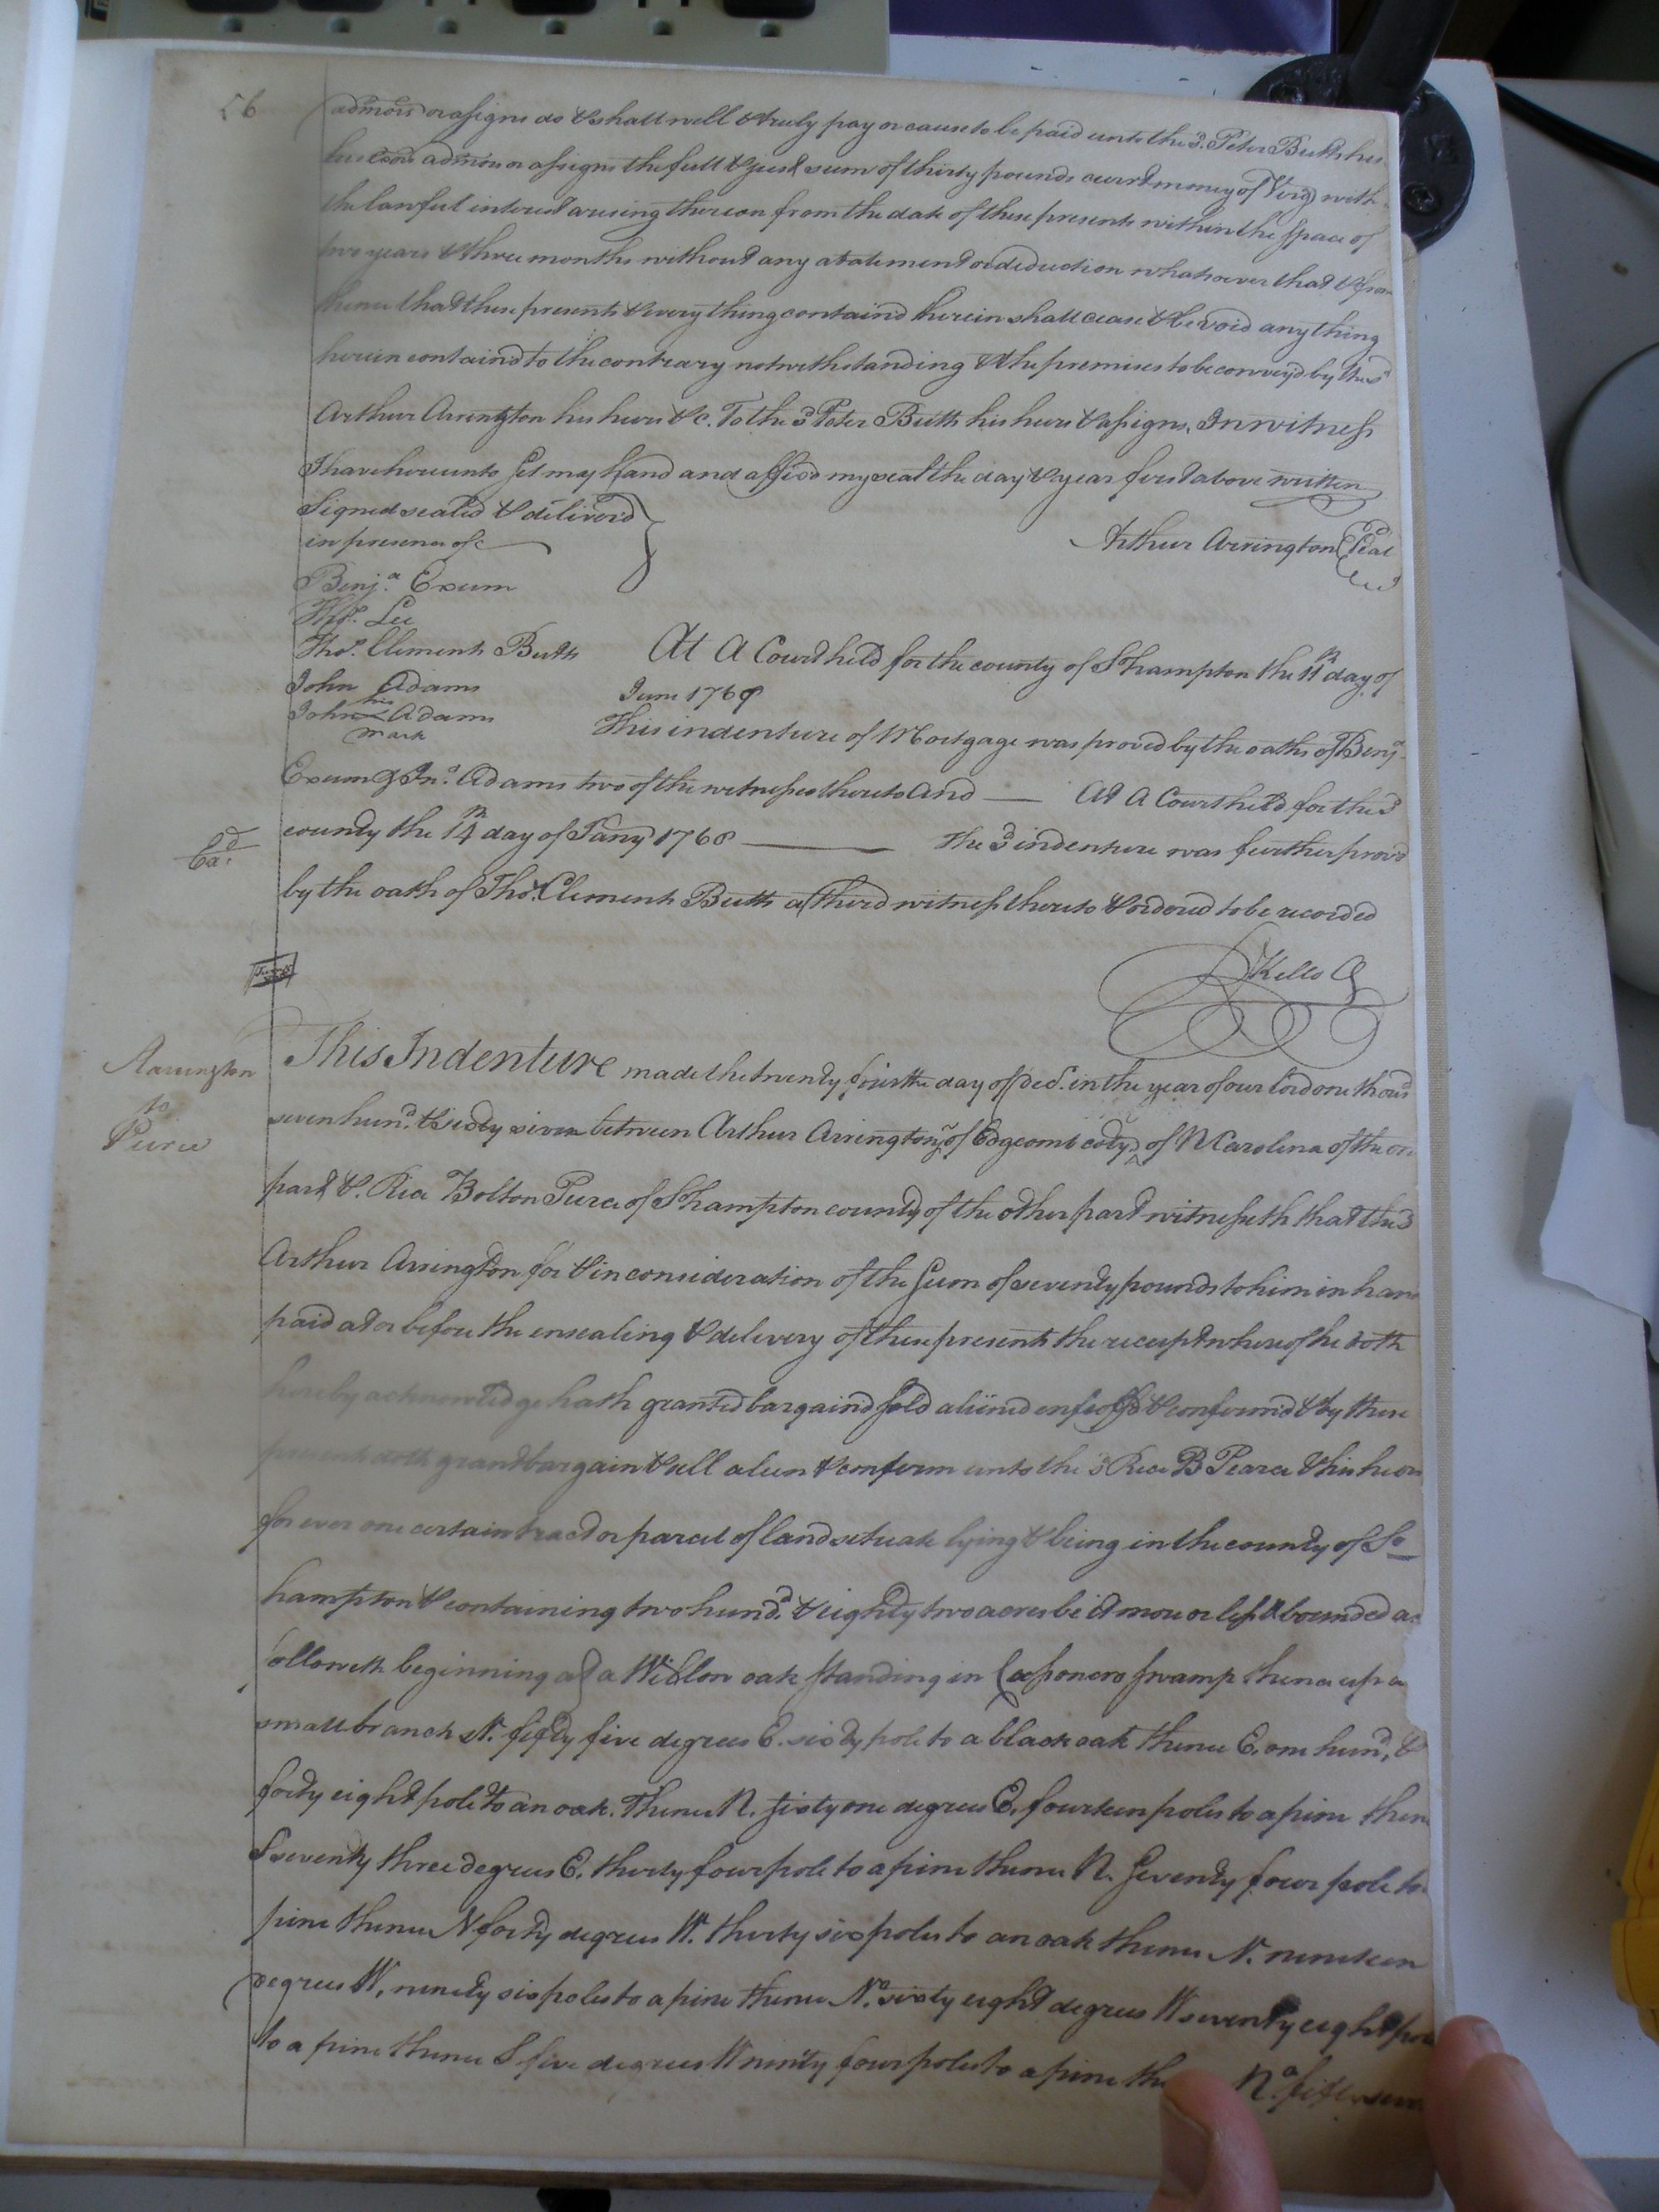 56
admors or assigns do & shall well & truly pay or cause to be paid unto the sd. Peter Butts his
his exors admors or assigns the full & just sum of thirty pounds currt money of Virga with
the lawful interest arising thereon from the date of these presents within the space of
two years & three months without any abatement or deduction whatsoever that & from
thence that these presents & every thing containd herein shall cease & be void any thing
herein containd to the contrary notwithstanding & the premises to be convey'd by the sd
Arthur Arrington his heirs &c. To the sd Peter Butts his heirs & assigns. In witness
I have hereunto set my hand and affixd my seal the day & year first above written
Signed sealed & deliverd
in presence of
Arthur Arrington Seal
Benja. Exum
Thos. Lee
Thos. Clements Butts
John Adams
his
John Adams
mark
At A Court held for the county of Sohampton the 11th day of
June 1767
This indenture of Mortgage was proved by the oaths of Benja.
Exum & Jno. Adams two of the witnesses thereto And — At A Court held for the sd
county the 14th day of Jany 1768 — The sd indenture was further provd
Exd.
by the oath of Thos. Clements Butts a third witness thereto & orderd to be recorded
Kello
Arrington
to
Peirce
This Indenture made the twenty fourth day of Dec. in the year of our Lord one thousd
seven hund. & sixty seven between Arthur Arrington of Edgcomb coty. of N Carolina of the one
part & Rice Bolton Peirce of Sohampton county of the other part witnesseth that the sd
Arthur Arrington for & in consideration of the sum of seventy pounds to him in hand
paid at or before the ensealing & delivery of these presents the receipt whereof he doth
hereby acknowledge hath granted bargaind sold aliened enfeoffd & confirmd & by these
presents doth grant bargain & sell alien & confirm unto the sd Rice B Pearce & his heirs
for ever one certain tract or parcel of land situate lying & being in the county of So
hampton & containing two hund. & eighty two acres be it more or less & bounded as
followeth beginning at a Willow oak standing in swamp thence up a
small branch N. fifty five degrees E. sixty pole to a black oak thence E. one hund. &
forty eight pole to an oak. Thence N. sixty one degrees E. fourteen poles to a pine then
S seventy three degrees E. thirty four pole to a pine thence N. seventy four pole to
pine thence N forty degrees W. thirty six poles to an oak thence N. nineteen
degrees W. ninety six poles to a pine thence No. sixty eight degrees W seventy eight pole
to a pine thence S five degrees W ninty four poles to a pine No. fifty